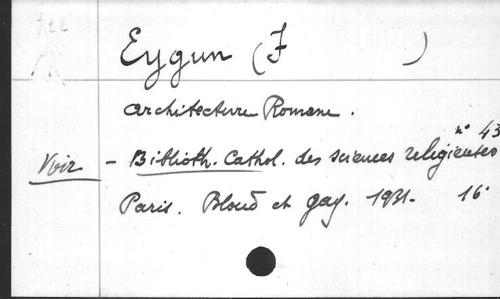 Eygun (F )
Architecture Romane.
n° 43
Voir - Biblioth. Cathol. des sciences religieuses
Paris. Bloud et Gay. 1931. 16°